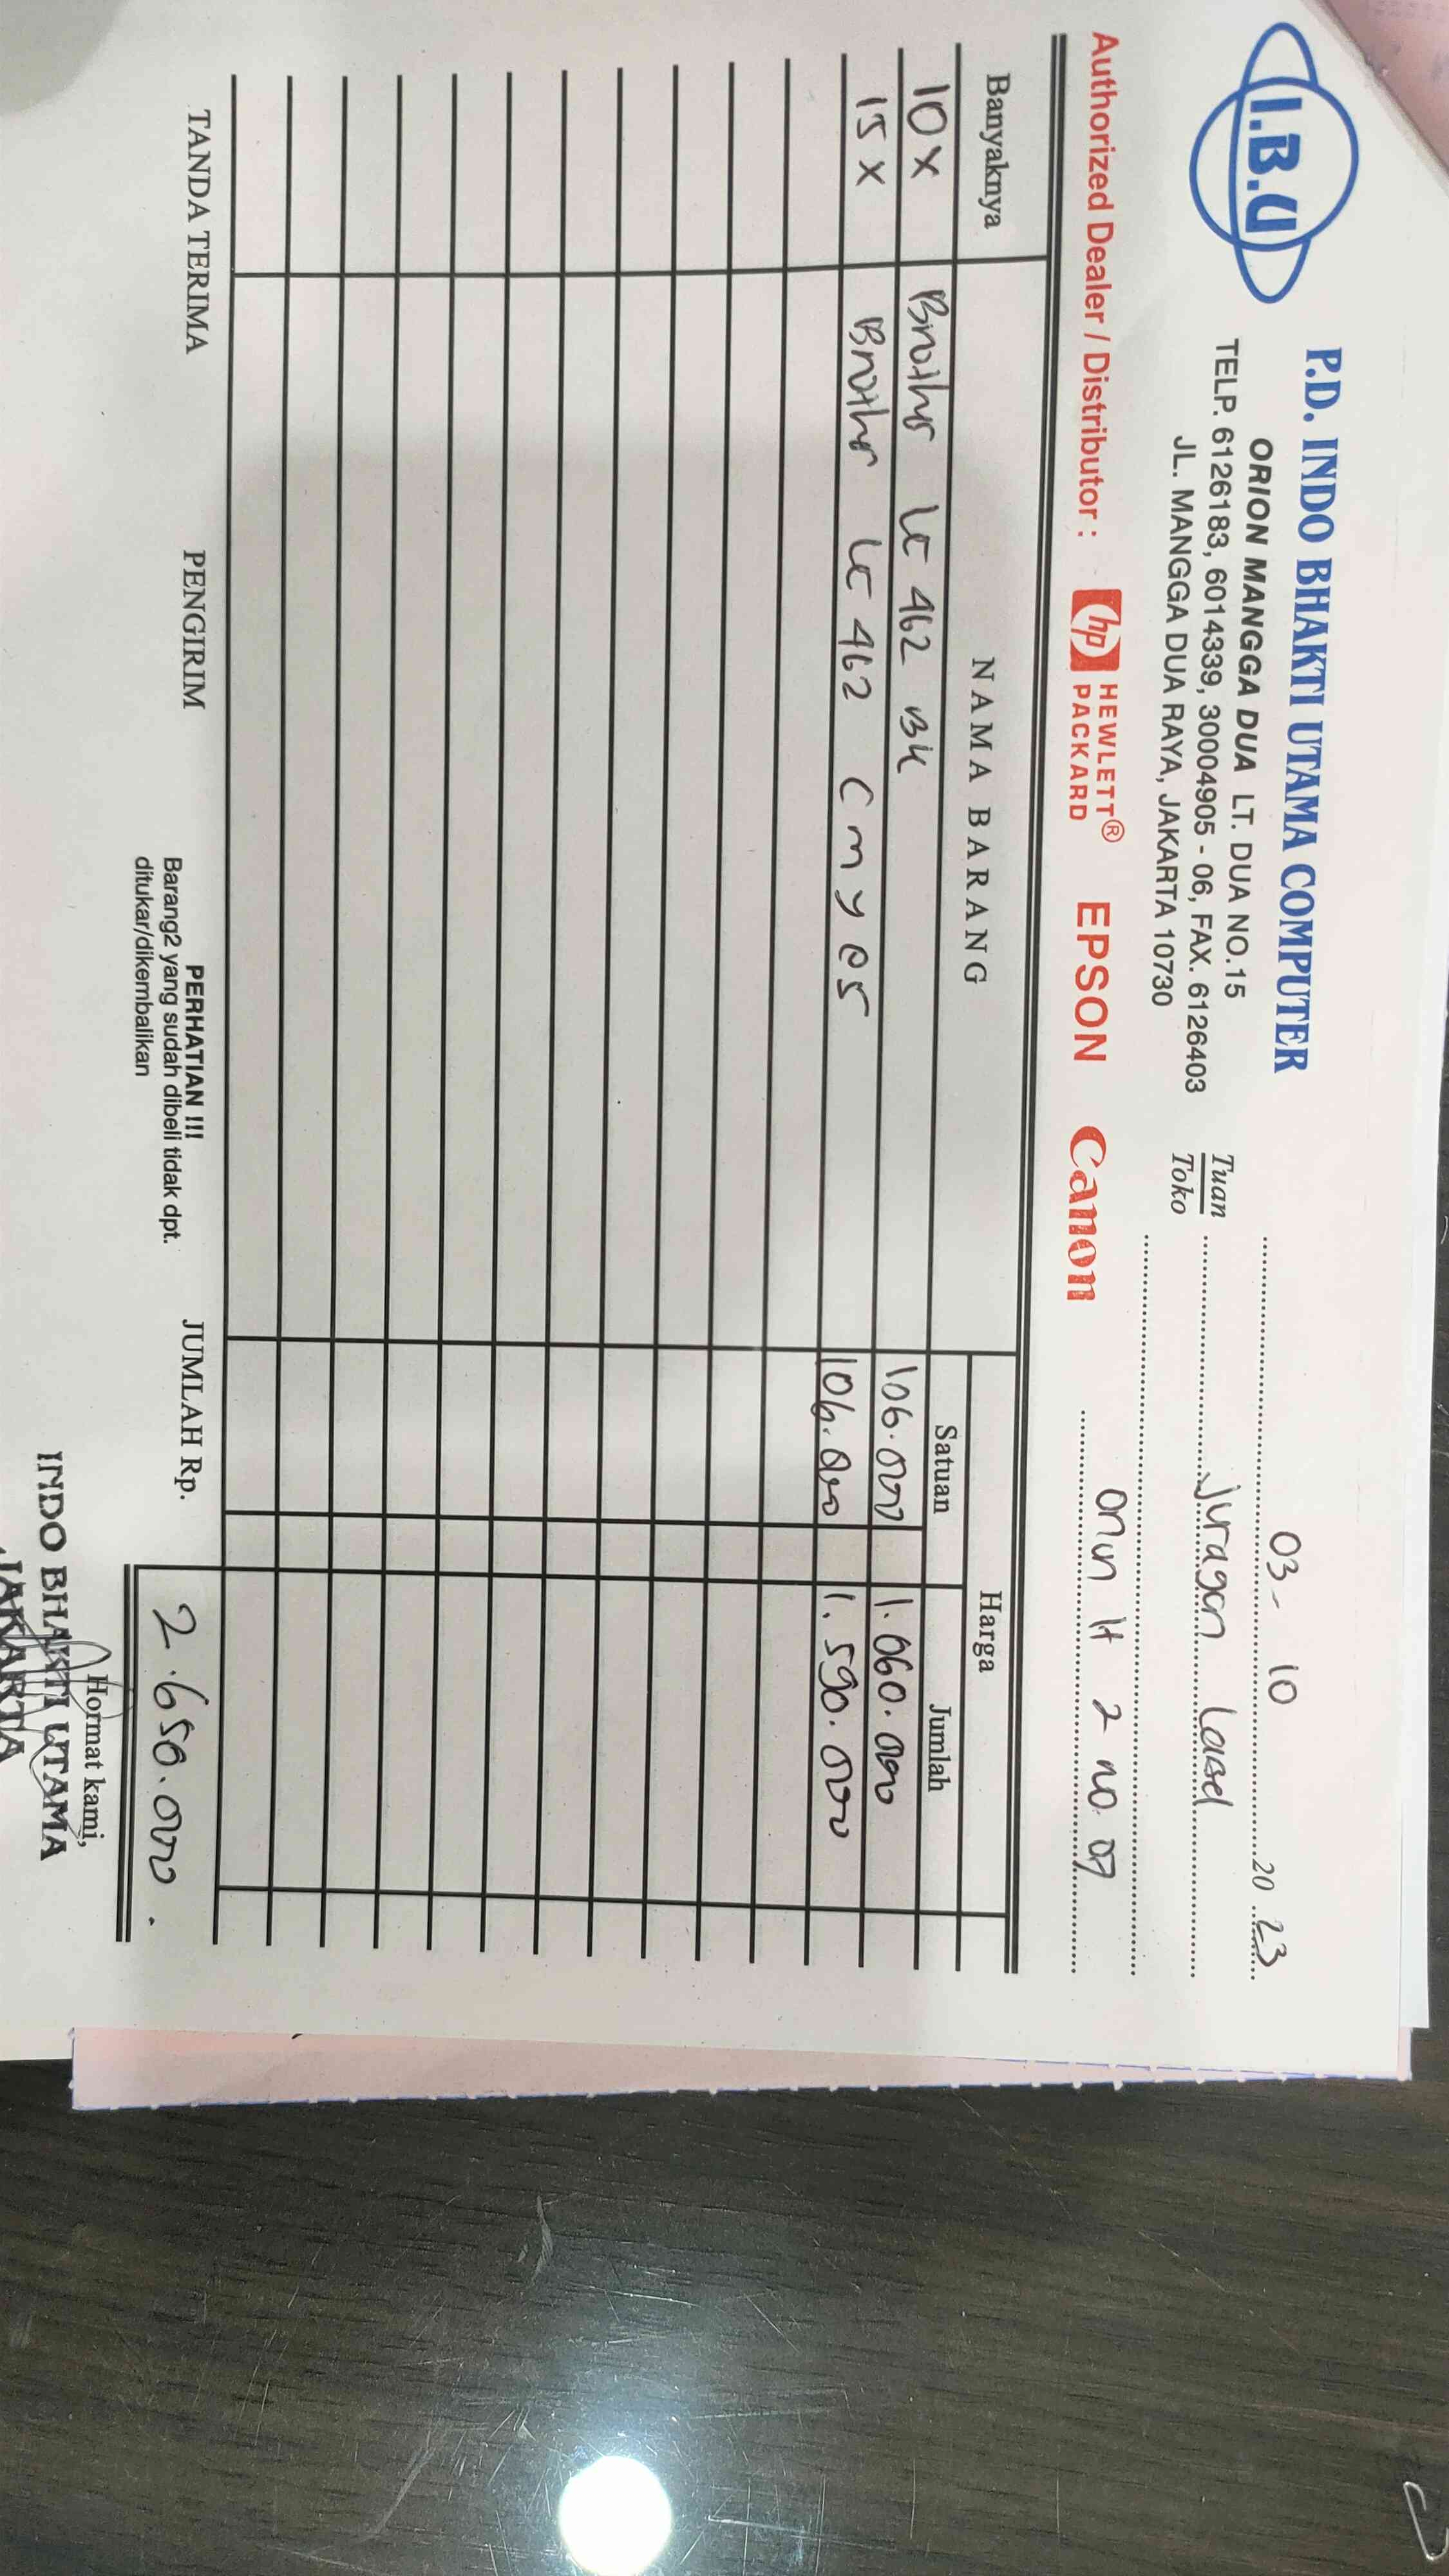 I.B.U
P.D. INDO BHAKTI UTAMA COMPUTER
ORION MANGGA DUA LT. DUA NO.15
TELP. 6126183, 6014339, 30004905 - 06, FAX. 6126403
JL. MANGGA DUA RAYA, JAKARTA 10730
03 - 10 20 23
Tuan
Toko
Juragan Label
Orion lt 2 no. 07
Authorized Dealer / Distributor : hp HEWLETT® PACKARD EPSON Canon
Banyaknya NAMA BARANG Harga
Satuan Jumlah
10 x Brother LC 462 BK 106.000 1.060.000
15 x Brother LC 462 C M Y @5 106.000 1.590.000
TANDA TERIMA PENGIRIM
PERHATIAN !!!
Barang2 yang sudah dibeli tidak dpt.
ditukar/dikembalikan
JUMLAH Rp. 2.650.000.
Hormat kami,
INDO BHAKTI UTAMA
JAKARTA